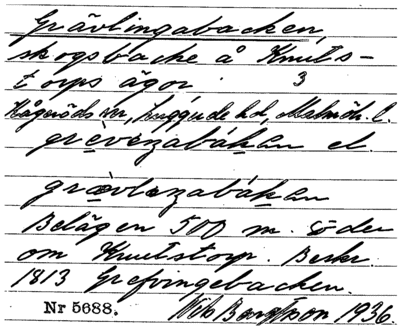 Grävlingabacken,
skogsbacke å Knuts-
torps ägor. 3
Kågeröds sn, Luggude hd, Malmöh. l.
grèvenzabákan el.
grævlenzabákan
Belägen 500 m. söder
om Knutstorp. Beskr.
1813 Grefvingebacken.
Nr 5688. Nils Bengtsson 1936.